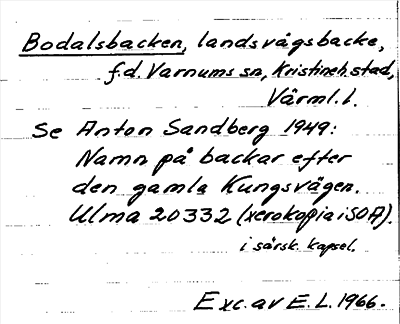 Bodalsbacken, landsvägsbacke,
f.d. Varnums sn, Kristineh. stad,
Värml. l.
Se Anton Sandberg 1949:
Namn på backar efter
den gamla Kungsvägen.
Ulma 20332 (xerokopia i SOA).
i särsk. kapsel.
Exc. av E.L. 1966.